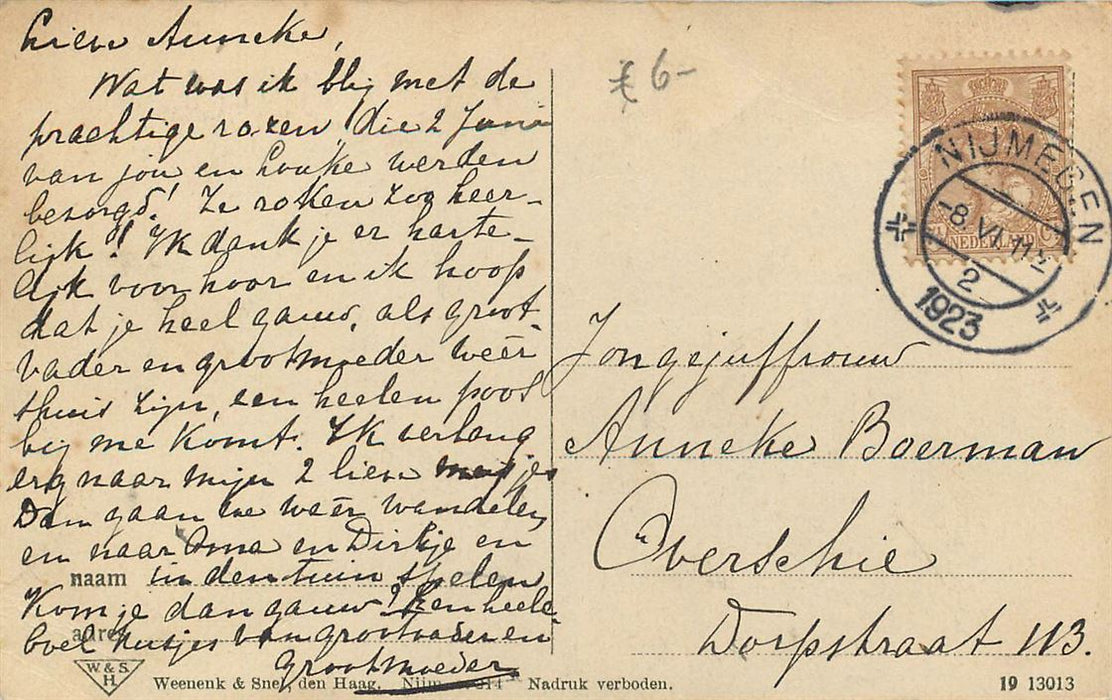 Lieve Anneke,
Wat was ik blij met de
prachtige rozen, die 2 Juni
van jou en Louke werden
bezorgd! Ze roken zoo heer-
lijk! Ik dank je er harte-
lijk voor hoor en ik hoop
dat je heel gauw, als groot-
vader en grootmoeder weêr
thuis zijn, een heelen poos
bij me komt. Ik verlang
erg naar mijn 2 lieve meisjes
Dan gaan we weêr wandelen,
en naar Oma en Dirkje en
naam in den tuin spelen
Kom je dan gauw? Een heele-
boel kusjes van grootvader en
adres
Grootmoeder
W. & S.
H.
Weenenk & Snel, den Haag. Nijm 14 Nadruk verboden.
19 13013
€ 6-
NEDERLAND
NIJMEGEN
-8.VI.11½
2
1923
Jongejuffrouw
Anneke Boerman
Overschie
Dorpstraat 113.